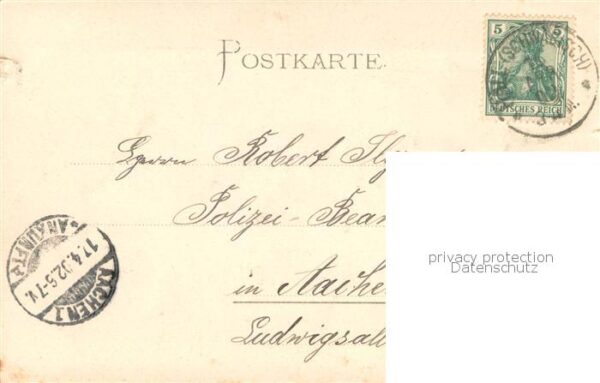 POSTKARTE
5 5
DEUTSCHES REICH
(SCHWÄBISCH)
Herrn Robert
Polizei-Bean
in Aache
Ludwigsall
ANKUNFT
17.4.02.6-7V.
AACHEN 1
privacy protection
Datenschutz